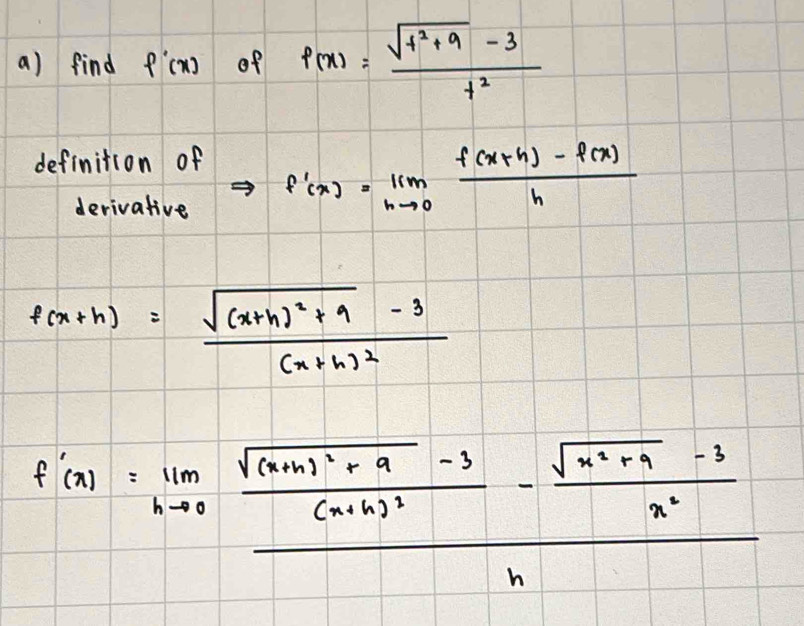 a) find f'(x) of f(x) = (√(t² + 9) - 3) / t²
definition of derivative ⇒ f'(x) = lim h→0 (f(x+h) - f(x)) / h
f(x+h) = (√((x+h)² + 9) - 3) / (x+h)²
f'(x) = lim h→0 ((√((x+h)² + 9) - 3) / (x+h)² - (√(x² + 9) - 3) / x²) / h